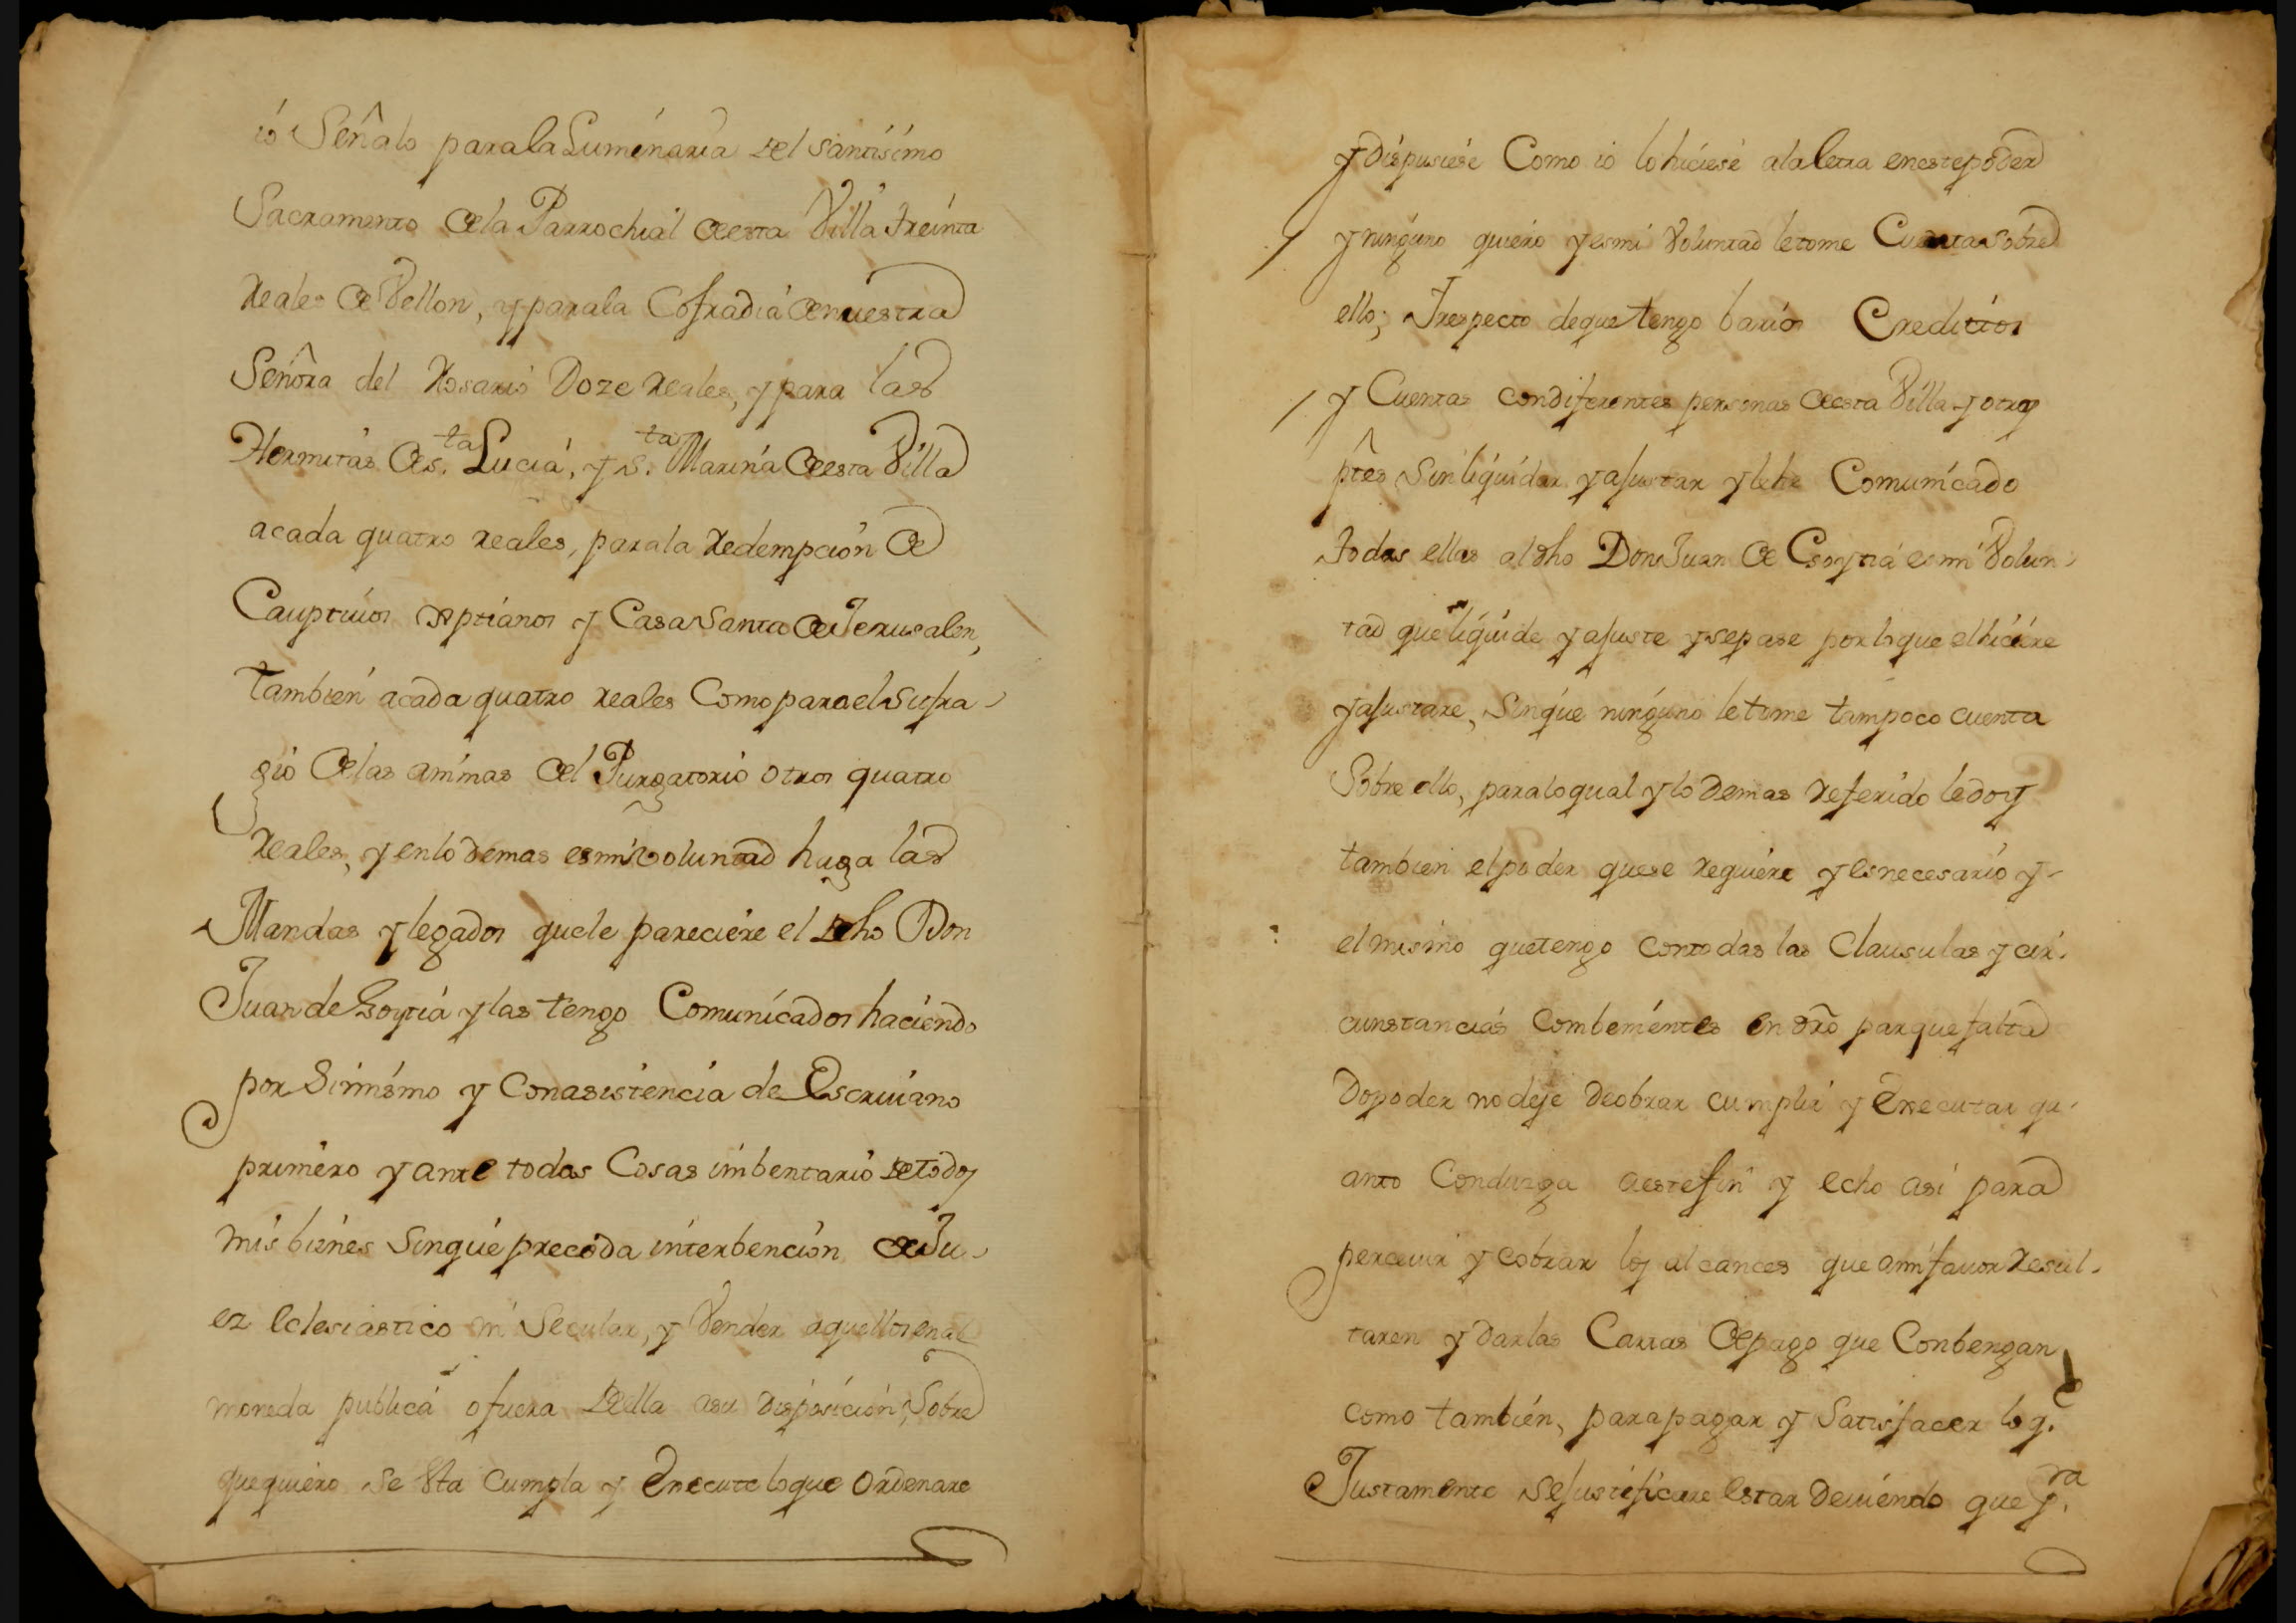 io Señalo para la Luminaria del santisimo
Sacramento de la Parrochial de esta Villa treinta
Reales de Vellon, y para la Cofradia de nuestra
Señora del Rosario Doze Reales, y para las
Hermitas de S.ta Lucia, y S.ta Marina de esta Villa
a cada quatro reales, para la Redempcion de
Cauptiuos xptianos y Casa Santa de Jerusalen,
tambien a cada quatro reales Como para el sufra-
gio de las animas del Purgatorio otros quatro
Reales, y en lo demas es mi voluntad haga las
Mandas y legados que le pareciere el dho Don
Juan de Goytia y las tengo Comunicados haciendo
por Si mismo y Con asistencia de Escriuano
primero y ante todas Cosas imbentario de todos
mis bienes Sin que preceda interbencion de Ju-
ez eclesiastico ni Secular, y Vender aquellos en al
moneda publica o fuera de ella a su disposicion, Sobre
que quiero Se Sta Cumpla y Execute lo que Ordenare
y Dispusiese Como io lo hiciese a la letra en este poder
y ninguno quiero y es mi Voluntad le tome Cuenta sobre
ello; I respecto de que tengo barios Creditos
y Cuentas con diferentes personas de esta Villa y otras
ptes Sin liquidar y ajustar y le he Comunicado
todas ellas al dho Don Juan de Goytia es mi Volun-
tad que liquide y ajuste y se pase por lo que el hiciere
y ajustare, Sin que ninguno le tome tampoco cuenta
Sobre ello, para lo qual y lo demas referido le doy
tambien el poder que se requiere y es necesario y-
el mismo que tengo con todas las Clausulas y cir-
cunstancias Combenientes en dro para que falta
Do poder no deje De obrar cumplir y Executar qu-
anto Conduzga a este fin y echo asi para
perceuir y cobrar los alcances que a mi fauor Resul-
taren y Dar las Cartas de pago que Conbengan
como tambien, para pagar y Satisfacer lo q.e
Justamente se justificare estar Deuiendo que p.ra